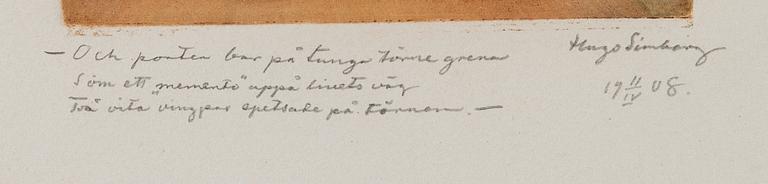 — Och porten bar på tunga törne grenar
Hugo Simberg
Som ett "memento" uppå livets väg
19 11/IV 08.
Två vita vingpar spetsade på törnen. —